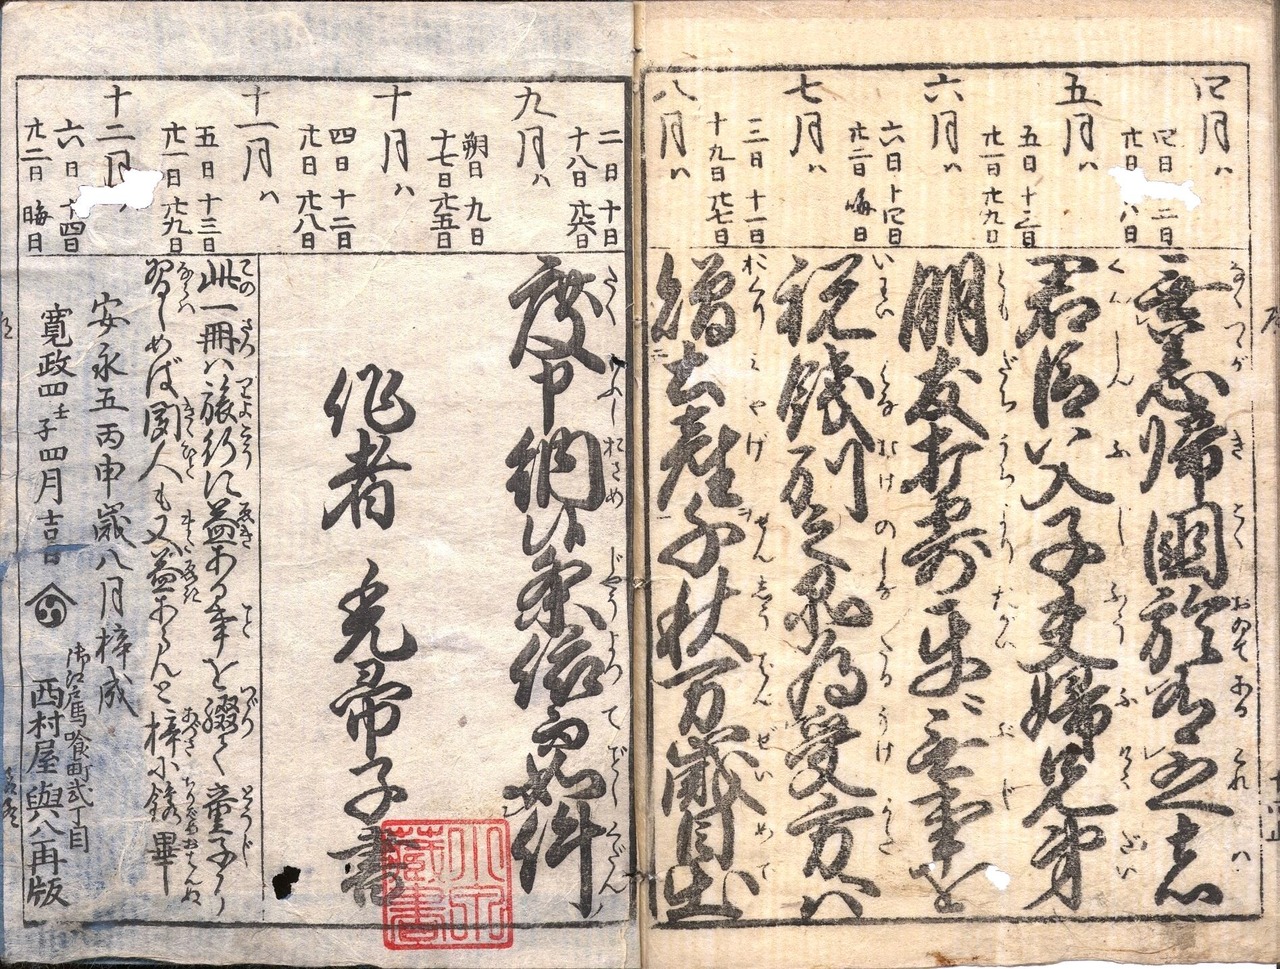 四月ハ
四日
廿日
八日
五月ハ
五日 十三日
廿一日 廿九日
六月ハ
六日 十四日
廿二日 晦日
七月ハ
三日 十一日
十九日 廿七日
八月ハ
無恙帰国於有之者
君臣父子夫婦兄弟
朋友打寄互ニ無事を
祝餞別之返為受方ハ
贈土産千秋万歳目出
二日 十日
十八日 廿六日
九月ハ
朔日 九日
十七日 廿五日
十月ハ
四日 十二日
廿日 廿八日
十一月ハ
五日 十三日
廿一日 廿九日
十二月
六日 十四日
廿二日 晦日
度申納候条依而如件
作者 光帚子書
此一冊ハ旅行に益ある事を綴て童子に
習しめば聞人も又益あらんと梓に鏤畢
安永五丙申歳八月梓成
寛政四壬子四月吉日
御江戸馬喰町弐丁目
西村屋與八再版